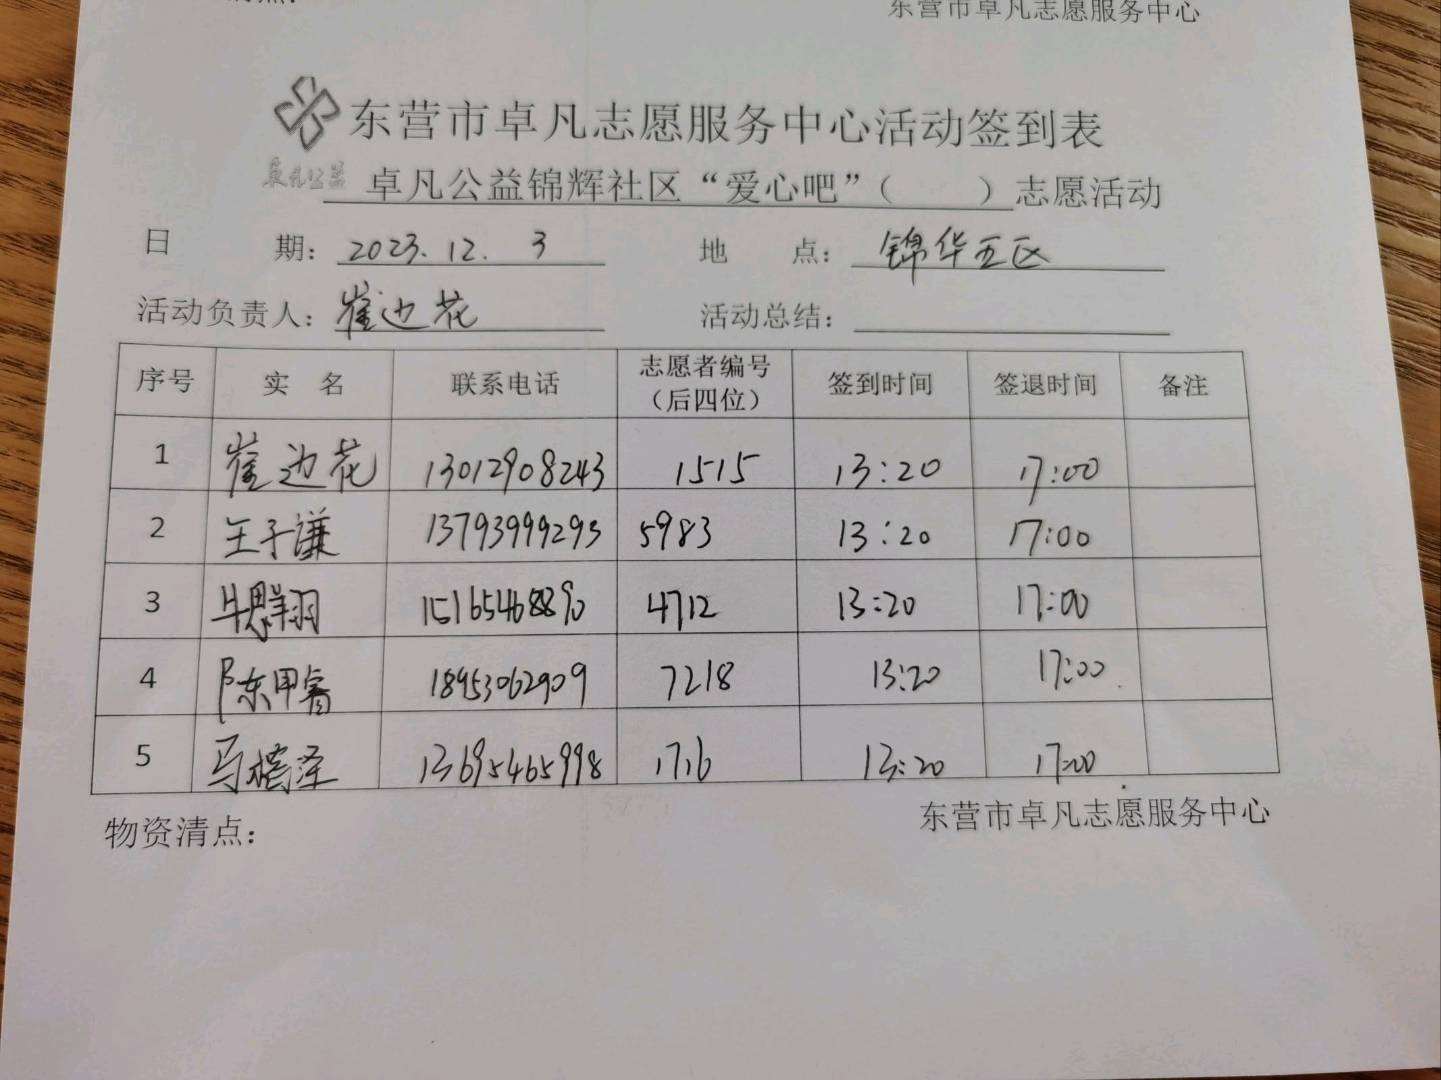 东营市卓凡志愿服务中心
东营市卓凡志愿服务中心活动签到表
卓凡公益
卓凡公益锦辉社区“爱心吧”（ ）志愿活动
日 期：2023.12.3 地 点：锦华五区
活动负责人：崔边花 活动总结：
序号 实 名 联系电话 志愿者编号（后四位） 签到时间 签退时间 备注
1 崔边花 13012908243 1515 13:20 17:00
2 王子谦 13793999293 5983 13:20 17:00
3 牛思翔 4712 13:20 17:00
4 陈甲睿 18953062909 7218 13:20 17:00
5 泽 13695465998 1716 13:20 17:00
物资清点： 东营市卓凡志愿服务中心